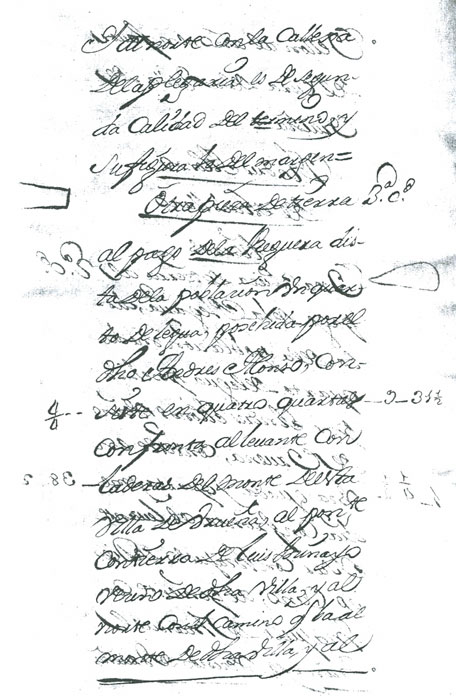 Y al norte con la Calleja
de la plegaria es de segun-
da Calidad del termino, y
Su figura la del margen=
Otra pieza de tierra 3.ª C.ª
al pago de la Reguera dis-
ta de la poblacion un quar-
to de legua, posehida por el
dho Andres Alonso, Con-
siste en quatro quartas
Confronta al levante Con
laderas del monte de esta
villa de al pon.te
Con tierra de Luis
vecino de dha Villa, y al
norte con el Camino q va al
monte de dha villa, y al